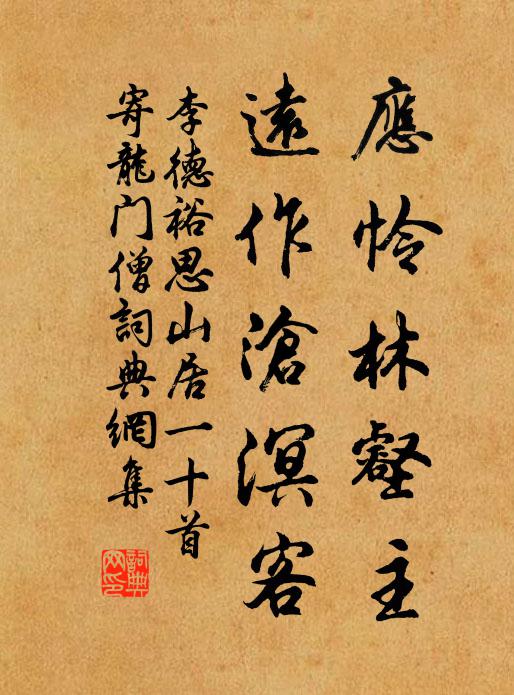 應怜林壑主
遠作滄溟客
李德裕思山居一十首
寄龍门僧詞典網集
詞典
网印